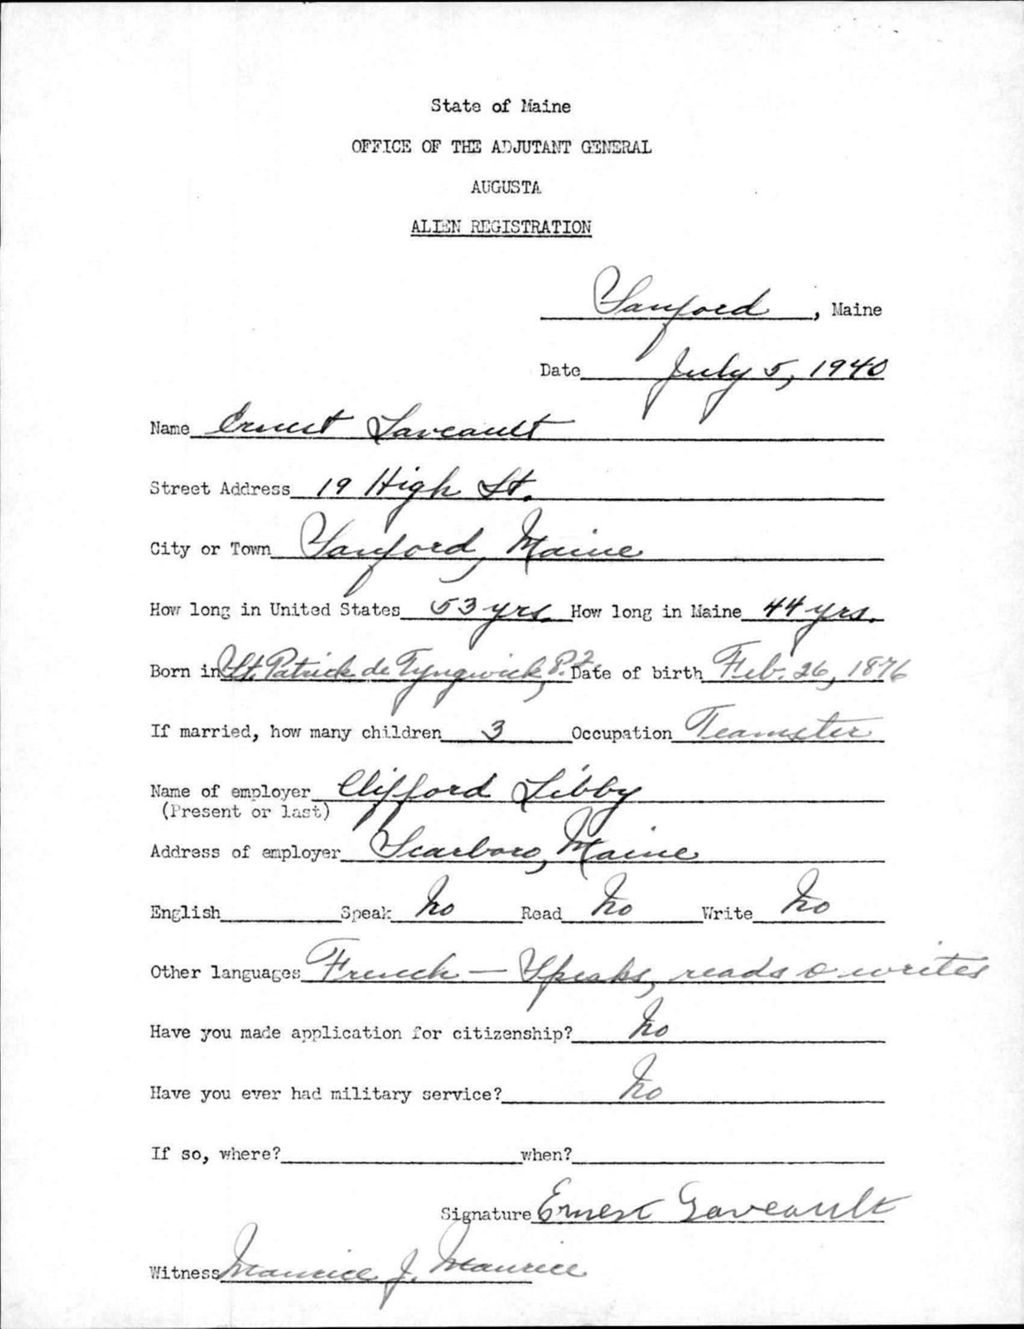 State of Maine
OFFICE OF THE ADJUTANT GENERAL
AUGUSTA
ALIEN REGISTRATION
Sanford, Maine
Date July 5, 1940
Name Ernest Laveault
Street Address 19 High St.
City or Town Sanford, Maine
How long in United States 53 yrs. How long in Maine 44 yrs.
Born in St. Patrick de Tyngwick, P.Q. Date of birth Feb. 26, 1876
If married, how many children 3 Occupation Teamster
Name of employer Clifford Libby
(Present or last)
Address of employer Scarboro, Maine
English Speak No Read No Write No
Other languages French — Speaks, reads & writes
Have you made application for citizenship? No
Have you ever had military service? No
If so, where? when?
Signature Ernest Laveault
Witness Maurice J. Maurice